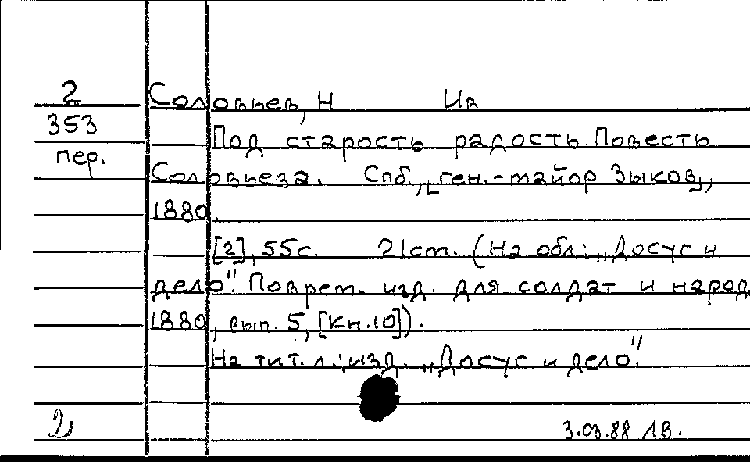 2 Соловьев, Н Ив
353 Под старость радость Повесть
пер.
Соловьева. Спб., [ген.-майор Зыков],
1880.
[2], 55с. 21см. (На обл.: „Досуг и
дело". Поврем. изд. для солдат и народ
1880, вып. 5, [кн.10]).
На тит. л.: изд. „Досуг и дело".
3.03.88 ЛВ.